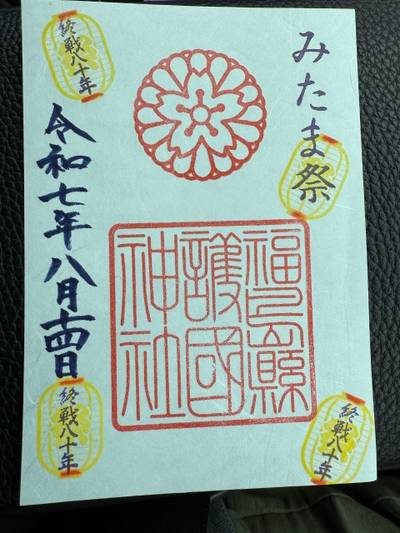 みたま祭
福島縣
護國
神社
令和七年八月十四日
終戦八十年
終戦八十年
終戦八十年